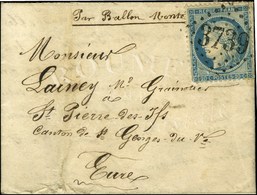 Par Ballon Monté
3739
Monsieur
Lainey Md Grainetier
à
St Pierre des Ifs
Canton de St Georges du Ve
Eure